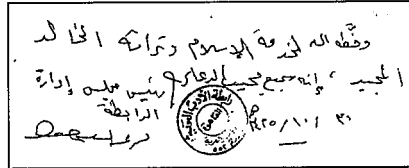 وفقه الله لخدمة الإسلام وتراثه الخالد
المجيد ، إنه سميع مجيب الدعاء رئيس مجلس إدارة
الرابطة
رابطة الأدب
٣٠ / ١٠ /